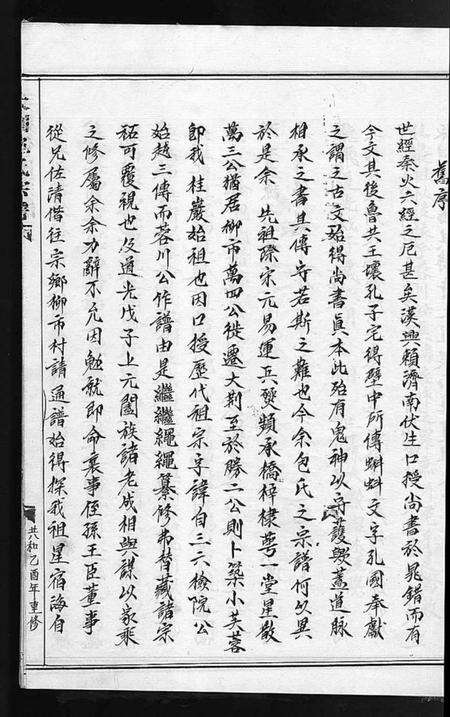 舊序
世經秦火六經之厄甚矣漢興賴濟南伏生口授尚書於晁錯而有
今文其後魯共王壞孔子宅得壁中所傳蝌蚪文字孔國奉獻
之謂之古文始得尚書真本此殆有鬼神以守護興蓋道脉
相承之書其傳守若斯之難也今余包氏之宗譜何以異
於是余先祖際宋元易運兵燹頻承橋梓棣萼一堂星散
萬三公猶居柳市萬四公徙遷大荆至於勝二公則卜築小芙蓉
即我桂巖始祖也因口授歷代祖宗字諱自三六檢院公
始越三傳而蓉川公作譜由是繼繼繩繩纂修弗替藏諸宗
祏可覆視也及道光戊子上元闔族諸老咸相與謀以家乘
之修屬余余力辭不允因勉就即命襄事侄孫王臣董事
從兄佐清偕往宗鄉柳市村請通譜始得探我祖星宿海自
共和乙酉年重修